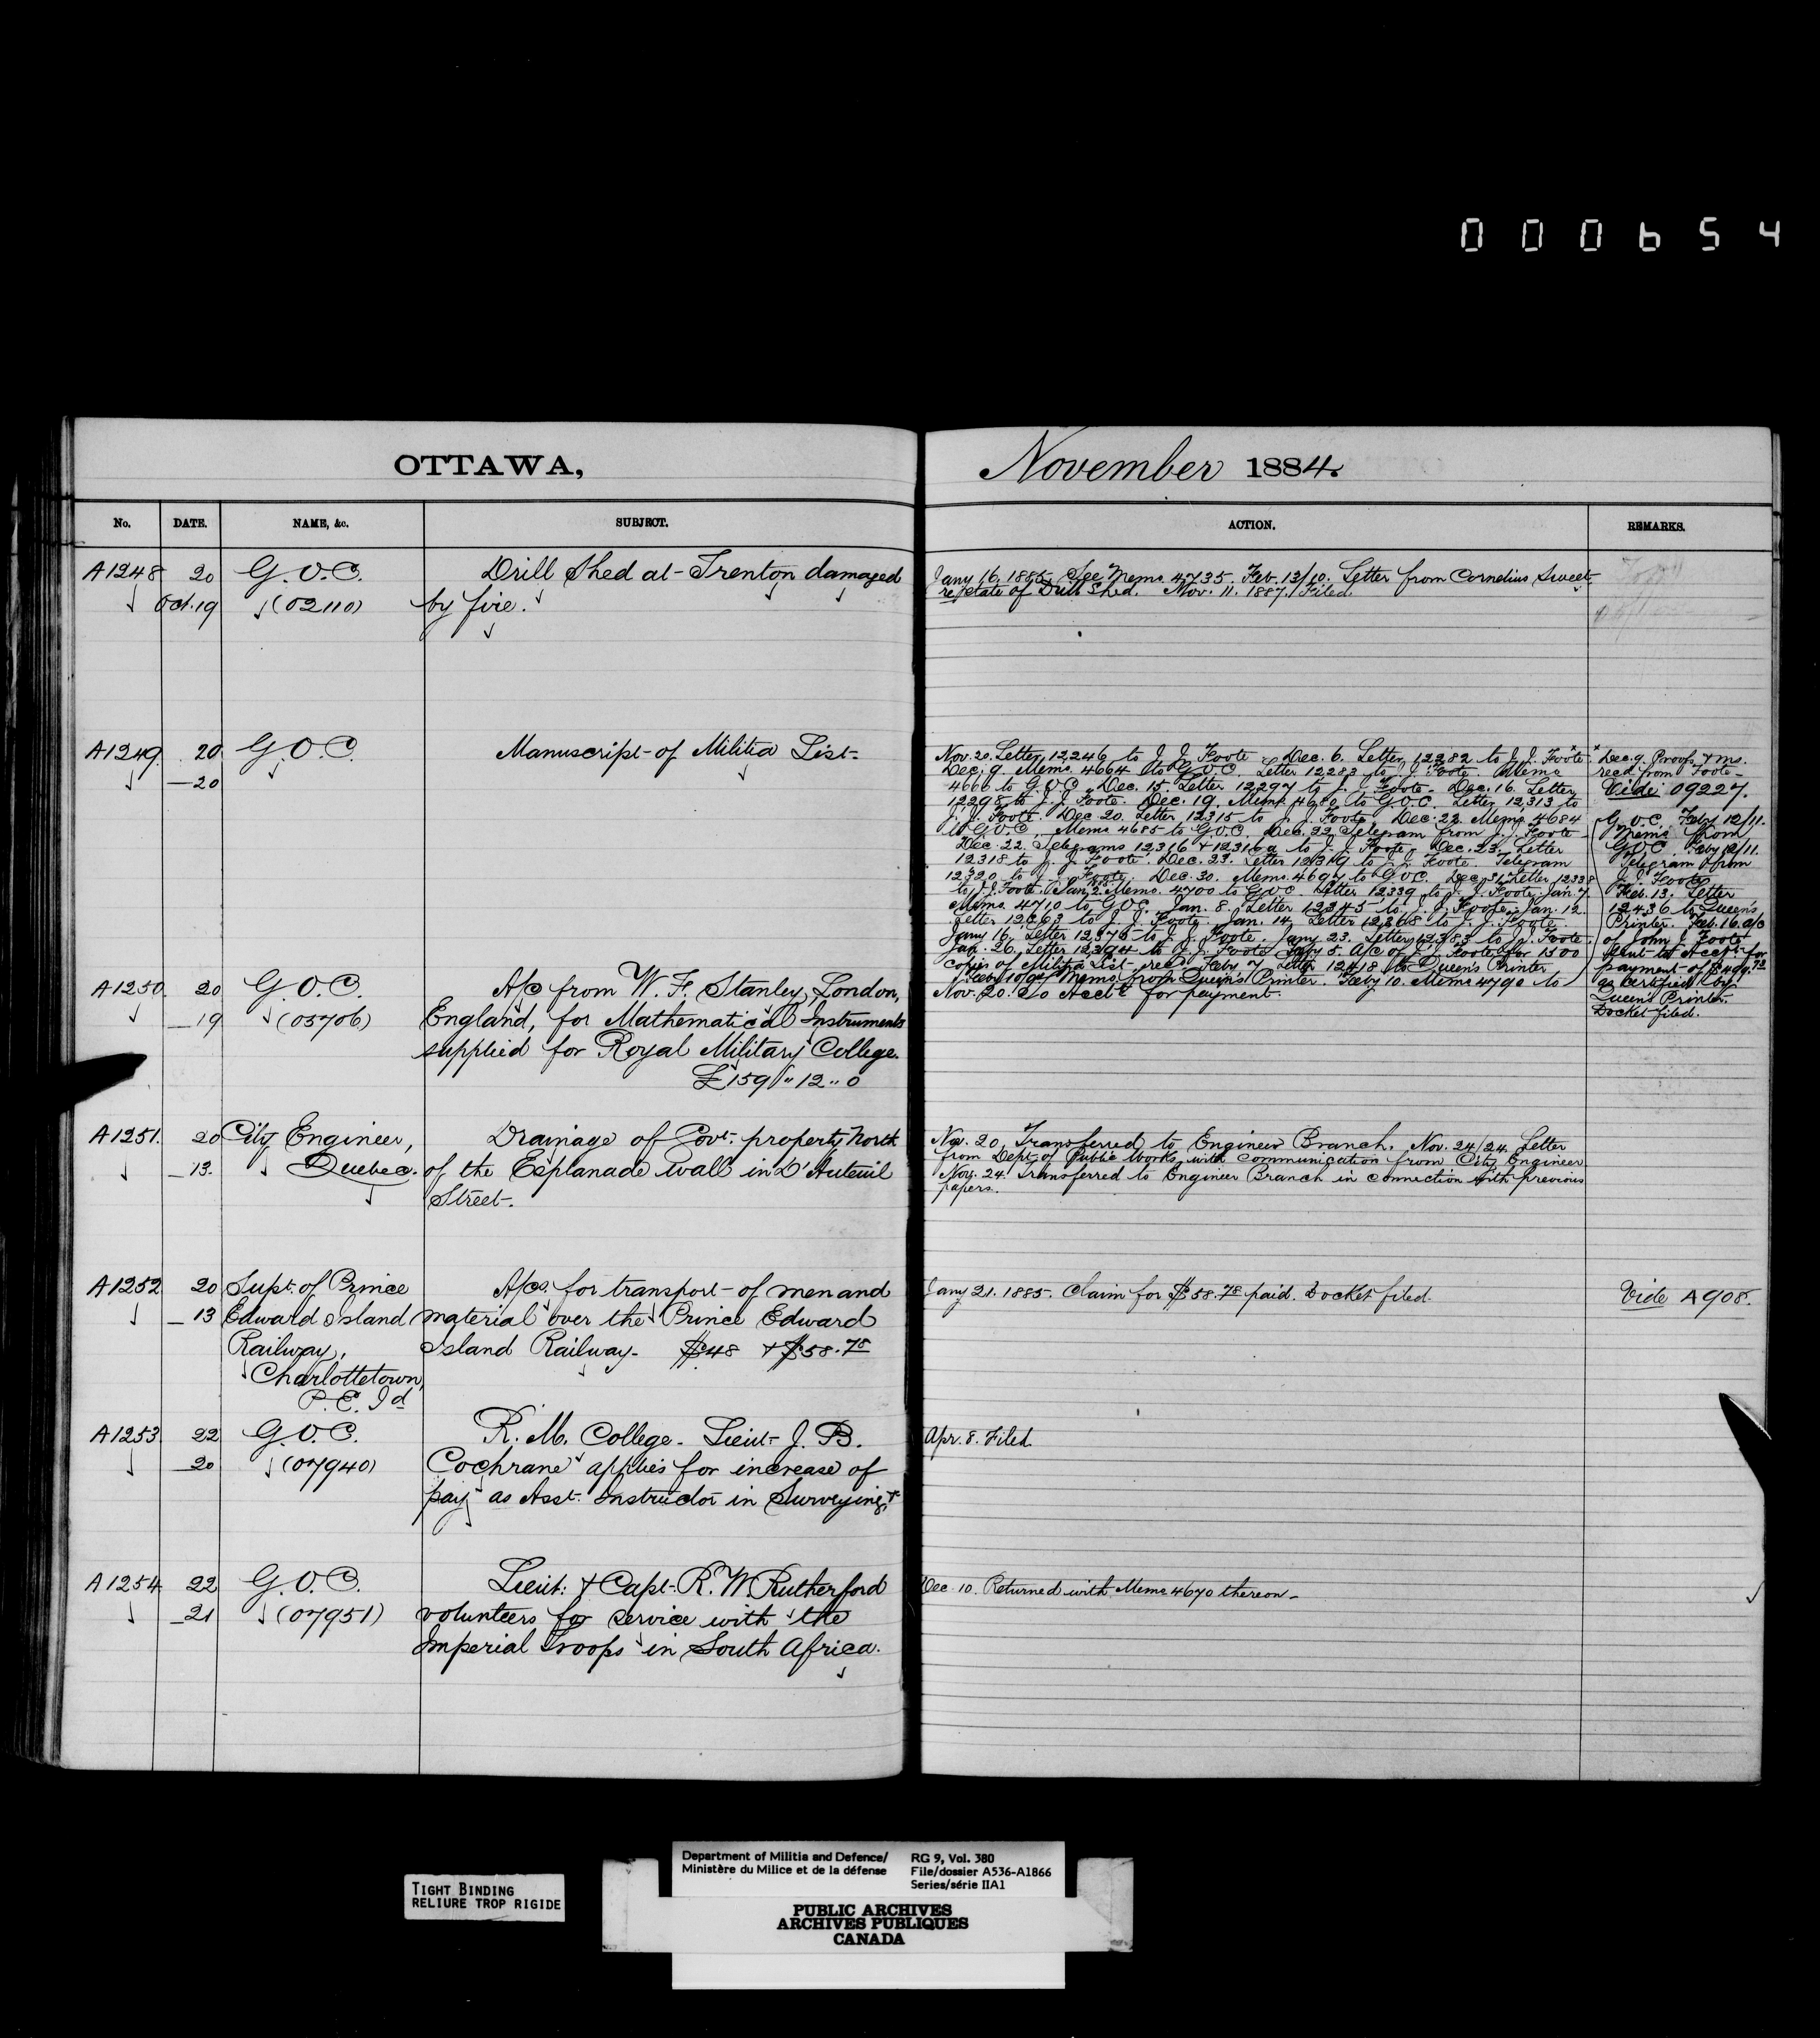 000654
OTTAWA,
November 1884.
No. DATE. NAME, &c. SUBJECT. ACTION. REMARKS.
A1248 20 G.O.C. Drill Shed at Trenton damaged
Oct. 19 (02110) by fire.
Jany 16. 1885. See Memo 4735. Feb. 13/10. Letter from Cornelius Sweet
re state of Drill Shed. Nov. 11. 1887. Filed.
A1249 20 G.O.C. Manuscript of Militia List
—20
Nov. 20. Letter 12246 to J. J. Foote. Dec. 6. Letter 12282 to J. J. Foote.
Dec. 9. Memo. 4664 to G.O.C. Letter 12283 to J. J. Foote. Memo
4666 to G.O.C. Dec. 15. Letter 12297 to J. J. Foote. Dec. 16. Letter
12298 to J. J. Foote. Dec. 19. Memo 4680 to G.O.C. Letter 12313 to
J. J. Foote. Dec. 20. Letter 12315 to J. J. Foote. Dec. 22. Memo 4684
to G.O.C. Memo 4685 to G.O.C. Dec. 22. Telegram from J. J. Foote
Dec. 22. Telegrams 12316 & 12316a to J. J. Foote. Dec. 23. Letter
12318 to J. J. Foote. Dec. 23. Letter 12319 to J. J. Foote. Telegram
12320 to J. J. Foote. Dec. 30. Memo. 4694 to G.O.C. Dec. 31. Letter 12338
to J. J. Foote. Jan. 2. Memo. 4700 to G.O.C. Letter 12339 to J. J. Foote. Jan. 7.
Memo. 4710 to G.O.C. Jan. 8. Letter 12345 to J. J. Foote. Jan. 12.
Letter 12363 to J. J. Foote. Jan. 14. Letter 12368 to J. J. Foote
Jany 16. Letter 12375 to J. J. Foote. Jany 23. Letter 12383 to J. J. Foote.
Jan. 26. Letter 12394 to J. J. Foote. Feby 5. A/c of J. J. Foote for 1500
copies of Militia List recd. Feby 7. Letter 12418 to Queen's Printer
Feby 10/9. Memo from Queen's Printer. Feby 10. Memo 4790 to
* Dec. 9. Proofs & ms.
recd. from Foote
Vide 09227.
G.O.C. Feby 12/11.
Memo from
G.O.C. Feby 12/11.
Telegram from
J. J. Foote
Feb. 13. Letter
12436 to Queen's
Printer. Feb. 16. a/c
of John J. Foote
sent to Acct. for
payment of
as certified by
Queen's Printer.
Docket filed.
A1250 20 G.O.C. A/c from W. F. Stanley, London,
—19 (03706) England, for Mathematical Instruments
supplied for Royal Military College.
£159 " 12 " 0
Nov. 20. To Acct. for payment.
A1251. 20 City Engineer, Drainage of Govt. property North
—13. Quebec. of the Esplanade wall in D'Auteuil
Street.
Nov. 20. Transferred to Engineer Branch. Nov. 24/24. Letter
from Dept. of Public Works, with communication from City Engineer
Nov. 24. Transferred to Engineer Branch in connection with previous
papers.
A1252 20 Supt. of Prince A/cs. for transport of men and
—13 Edward Island material over the Prince Edward
Railway, Island Railway. $48 & $58.75
Charlottetown,
P. E. Id
Jany 21. 1885. Claim for $58.75 paid. Docket filed.
Vide A908.
A1253 22 G.O.C. R. M. College. Lieut. J. B.
—20 (07940) Cochrane applies for increase of
pay as Asst. Instructor in Surveying &
Apr. 8. Filed.
A1254 22 G.O.C. Lieut. & Capt. R. W. Rutherford
—21 (07951) volunteers for service with the
Imperial Troops in South Africa.
Dec. 10. Returned with Memo 4670 thereon.
TIGHT BINDING
RELIURE TROP RIGIDE
Department of Militia and Defence/
Ministère du Milice et de la défense
RG 9, Vol. 380
File/dossier A536-A1866
Series/série IIA1
PUBLIC ARCHIVES
ARCHIVES PUBLIQUES
CANADA